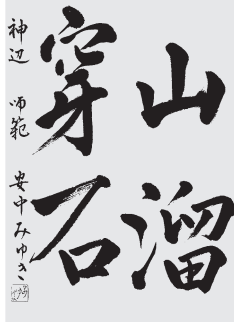 山溜
穿石
神辺 師範 安中みゆき